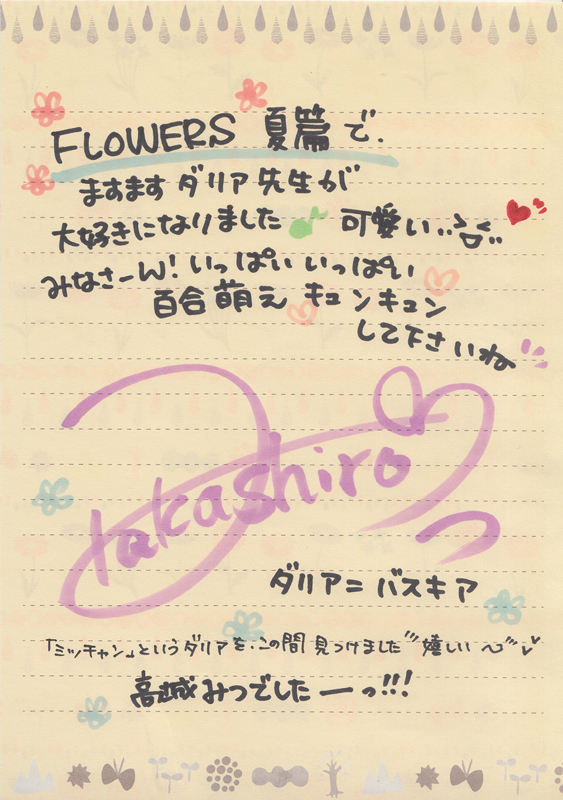 FLOWERS 夏篇で.
ますます ダリア先生が
大好きになりました 可愛い..
みなさーん! いっぱい いっぱい
百合萌え キュンキュン
して下さいね
takashiro
ダリア=バスキア
「ミッチャン」というダリアを・この間見つけました 嬉しい〜
高城みつでしたーっ!!!